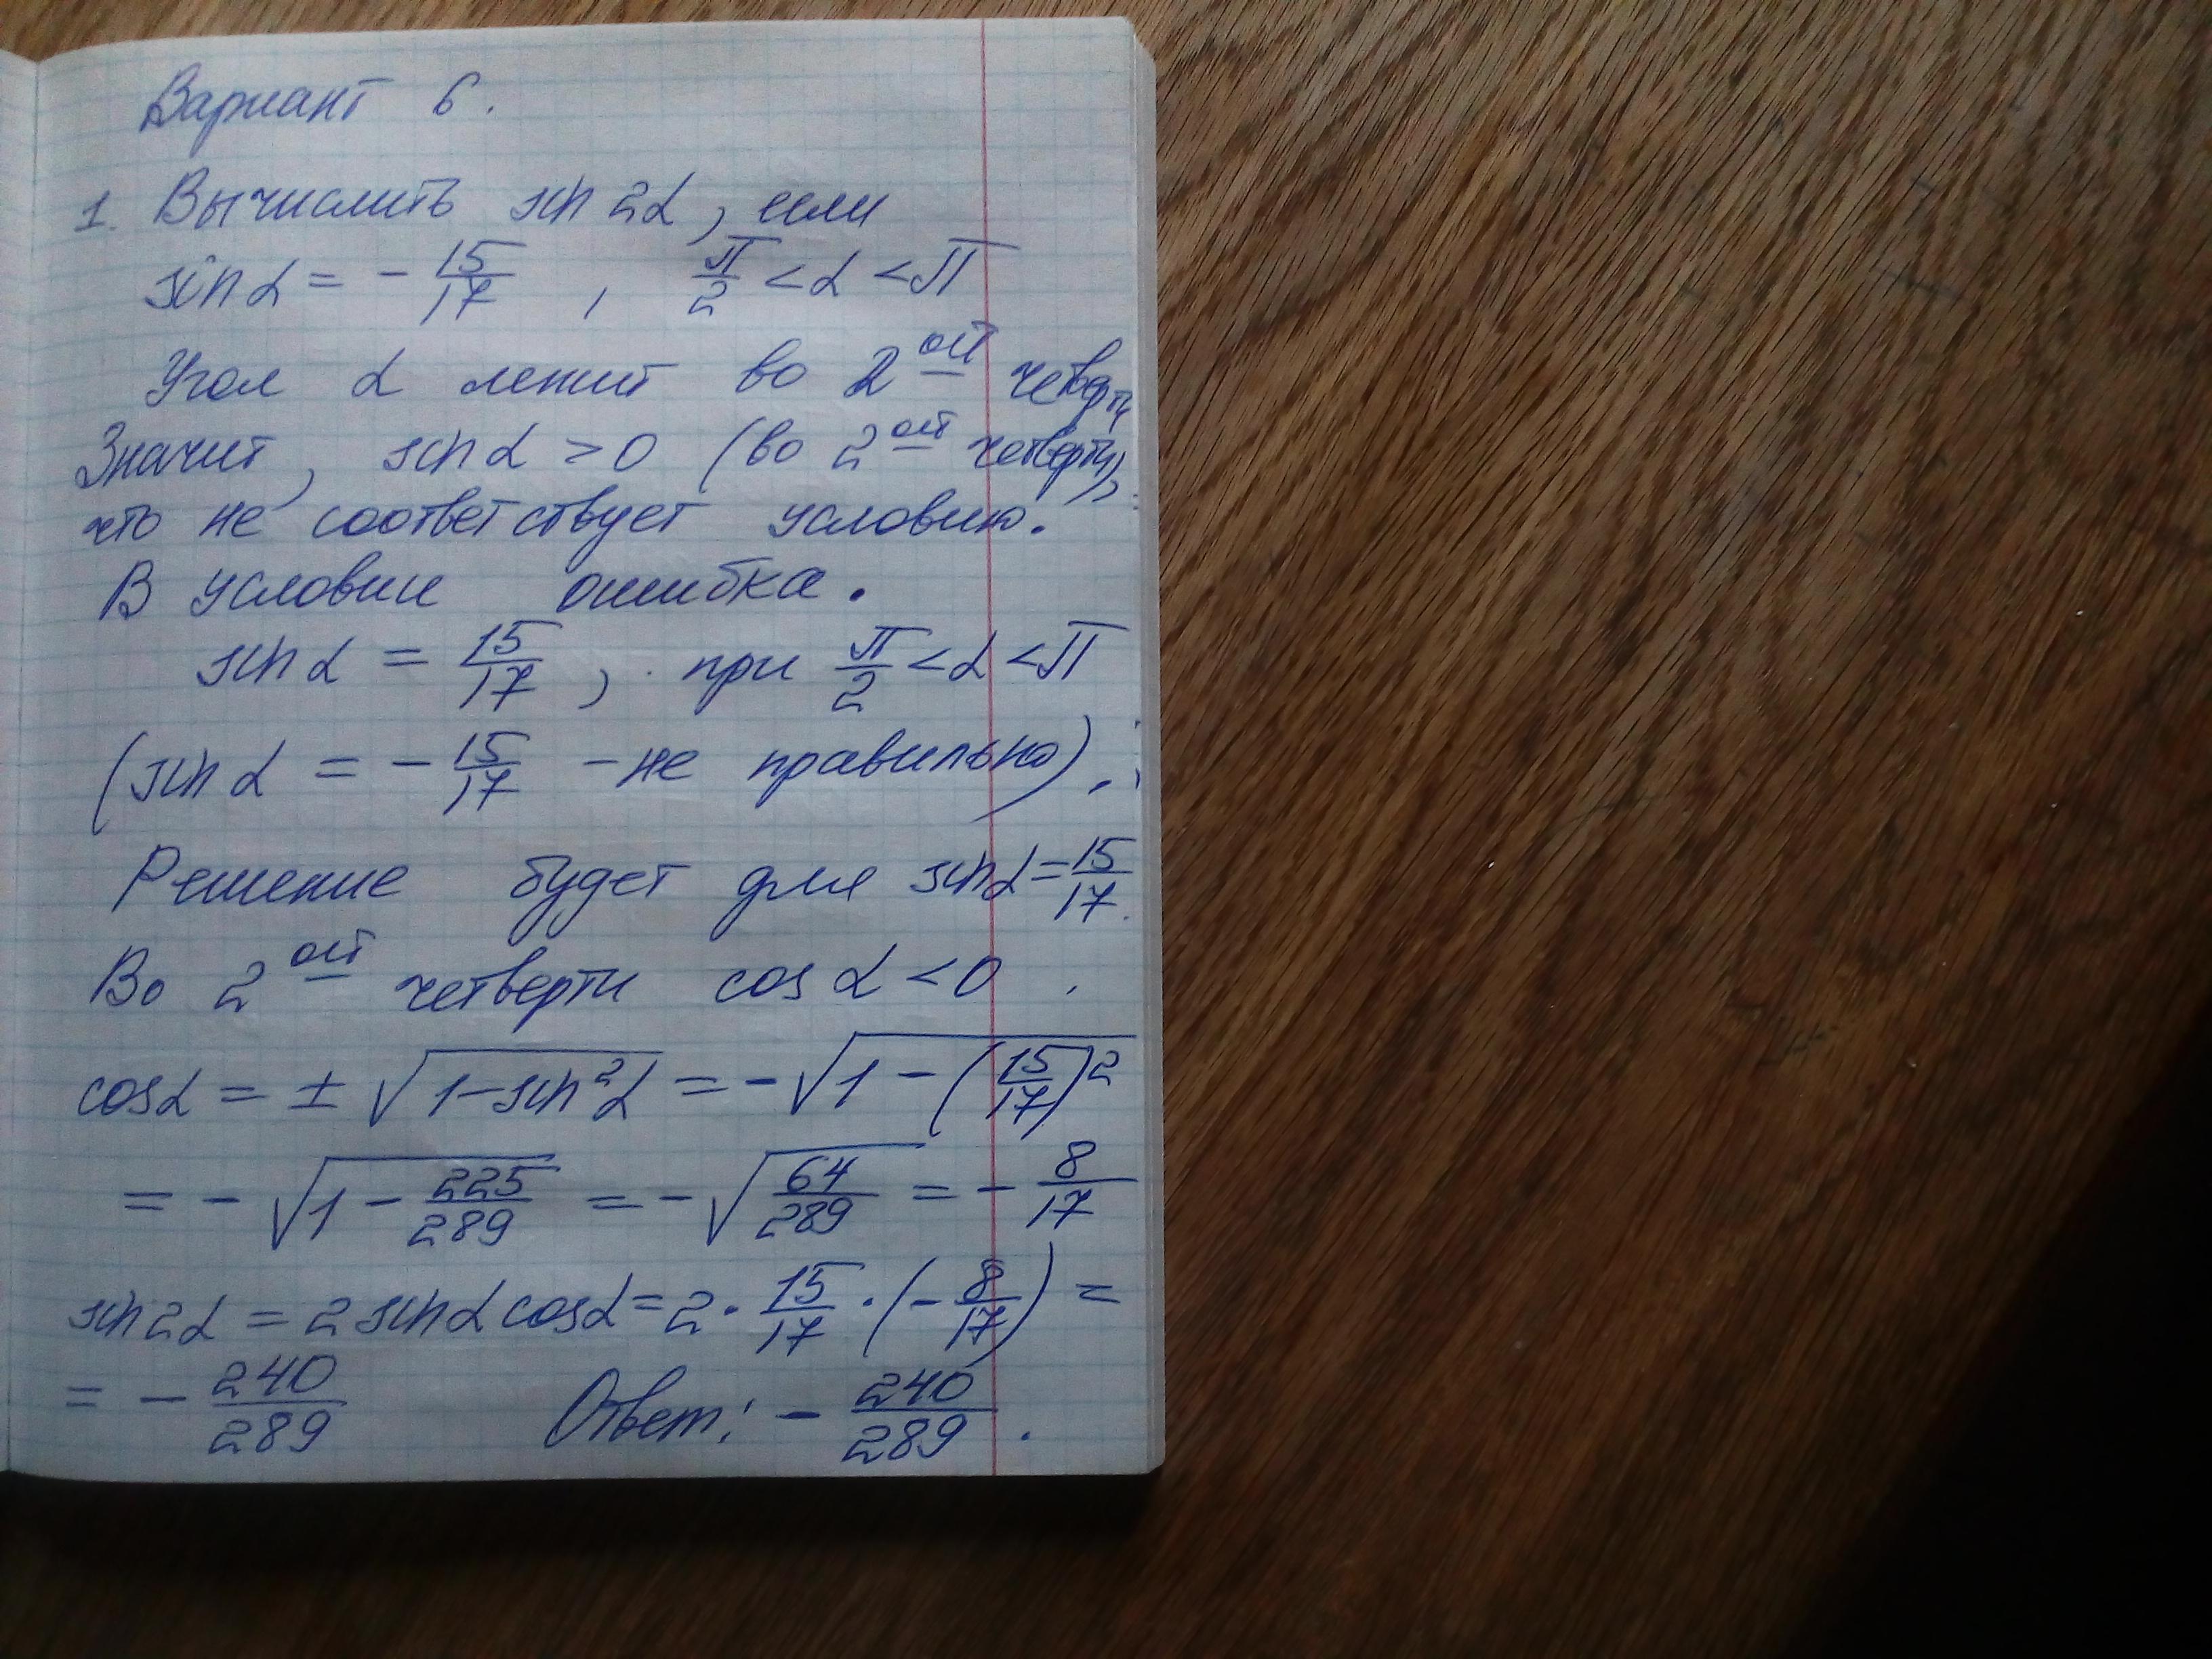 Вариант 6.
1. Вычислить sin 2α, если
sin α = - 15/17 , π/2 < α < π
Угол α лежит во 2ой четверти
Значит, sin α > 0 (во 2ой четверти),
что не соответствует условию.
В условии ошибка.
sin α = 15/17, при π/2 < α < π
(sin α = - 15/17 - не правильно).
Решение будет для sin α = 15/17.
Во 2ой четверти cos α < 0 .
cos α = ± √(1-sin²α) = - √(1 - (15/17)²
= - √(1 - 225/289) = - √(64/289) = - 8/17
sin 2α = 2 sin α cos α = 2 · 15/17 · (- 8/17) =
= - 240/289 Ответ: - 240/289 .